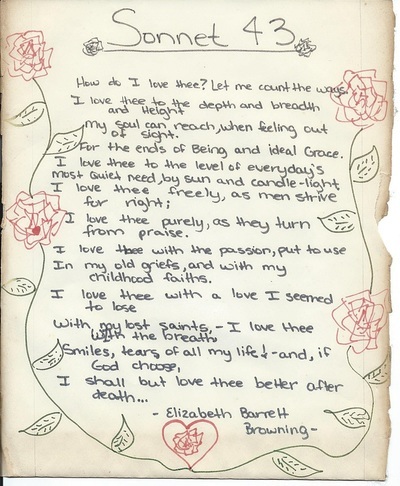 Sonnet 43
How do I love thee? Let me count the ways
I love thee to the depth and breadth
and Height
my soul can reach, when feeling out
of sight.
For the ends of Being and ideal Grace.
I love thee to the level of everyday's
most Quiet need, by sun and candle-light
I love thee freely, as men strive
for right;
I love thee purely, as they turn
from praise.
I love thee with the passion, put to use
In my old griefs, and with my
childhood faiths.
I love thee with a love I seemed
to lose
With my lost saints, - I love thee
with the breath,
Smiles, tears of all my life! - and, if
God choose,
I shall but love thee better after
death...
- Elizabeth Barrett
Browning -